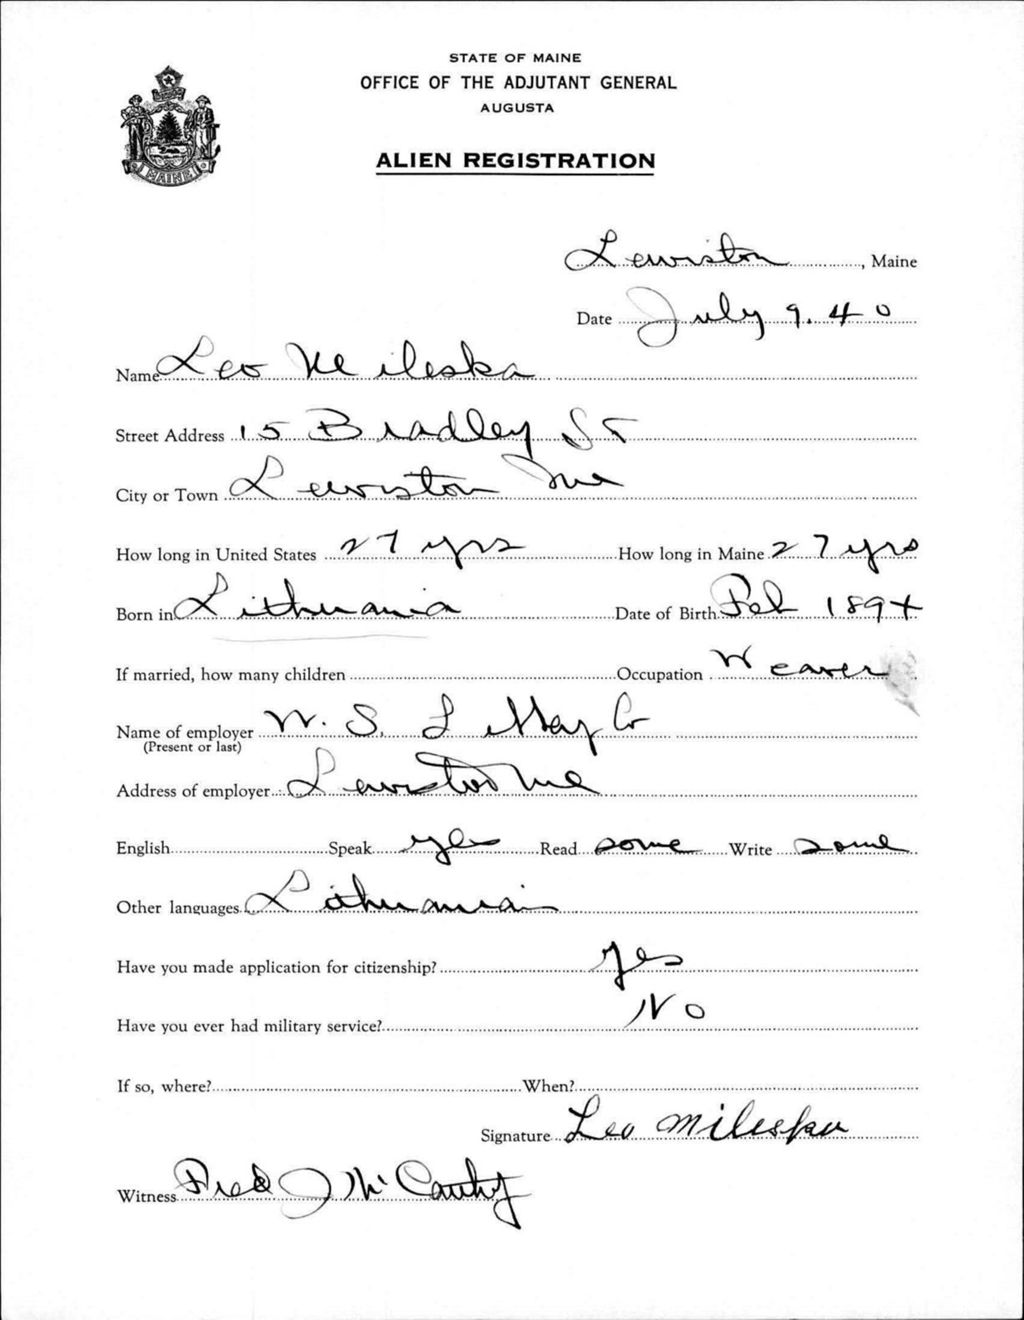 STATE OF MAINE
OFFICE OF THE ADJUTANT GENERAL
AUGUSTA
ALIEN REGISTRATION
MAINE
Lewiston, Maine
Date July 9. 40
Name Leo Mileska
Street Address 15 Bradley St
City or Town Lewiston Me
How long in United States 27 yrs How long in Maine 27 yrs
Born in Lithuania Date of Birth Feb 1894
If married, how many children Occupation Weaver
Name of employer W. S. Libbey Co
(Present or last)
Address of employer Lewiston Me
English Speak yes Read some Write some
Other languages Lithuanian
Have you made application for citizenship? Yes
Have you ever had military service? No
If so, where? When?
Signature Leo Mileska
Witness Fred J McCarthy